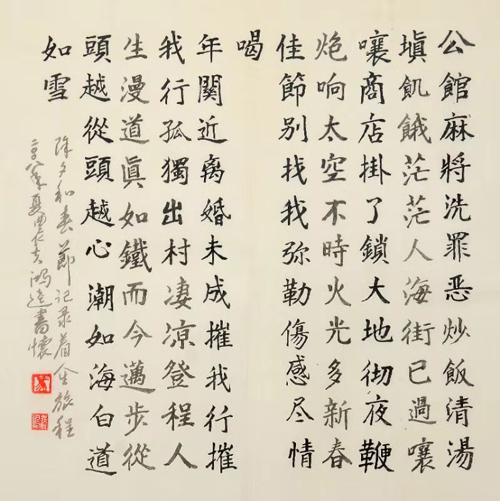 公館麻將洗罪惡炒飯清湯
填飢餓茫茫人海街已過嚷
嚷商店掛了鎖大地彻夜鞭
炮响太空不時火光多新春
佳節别找我弥勒傷感尽情
喝
年関近离婚未成摧我行摧
我行孤獨出村凄凉登程人
生漫道真如鐵而今邁步從
頭越從頭越心潮如海白道
如雪
除夕和春節记录着全旅程
二〇〇八年夏書懷